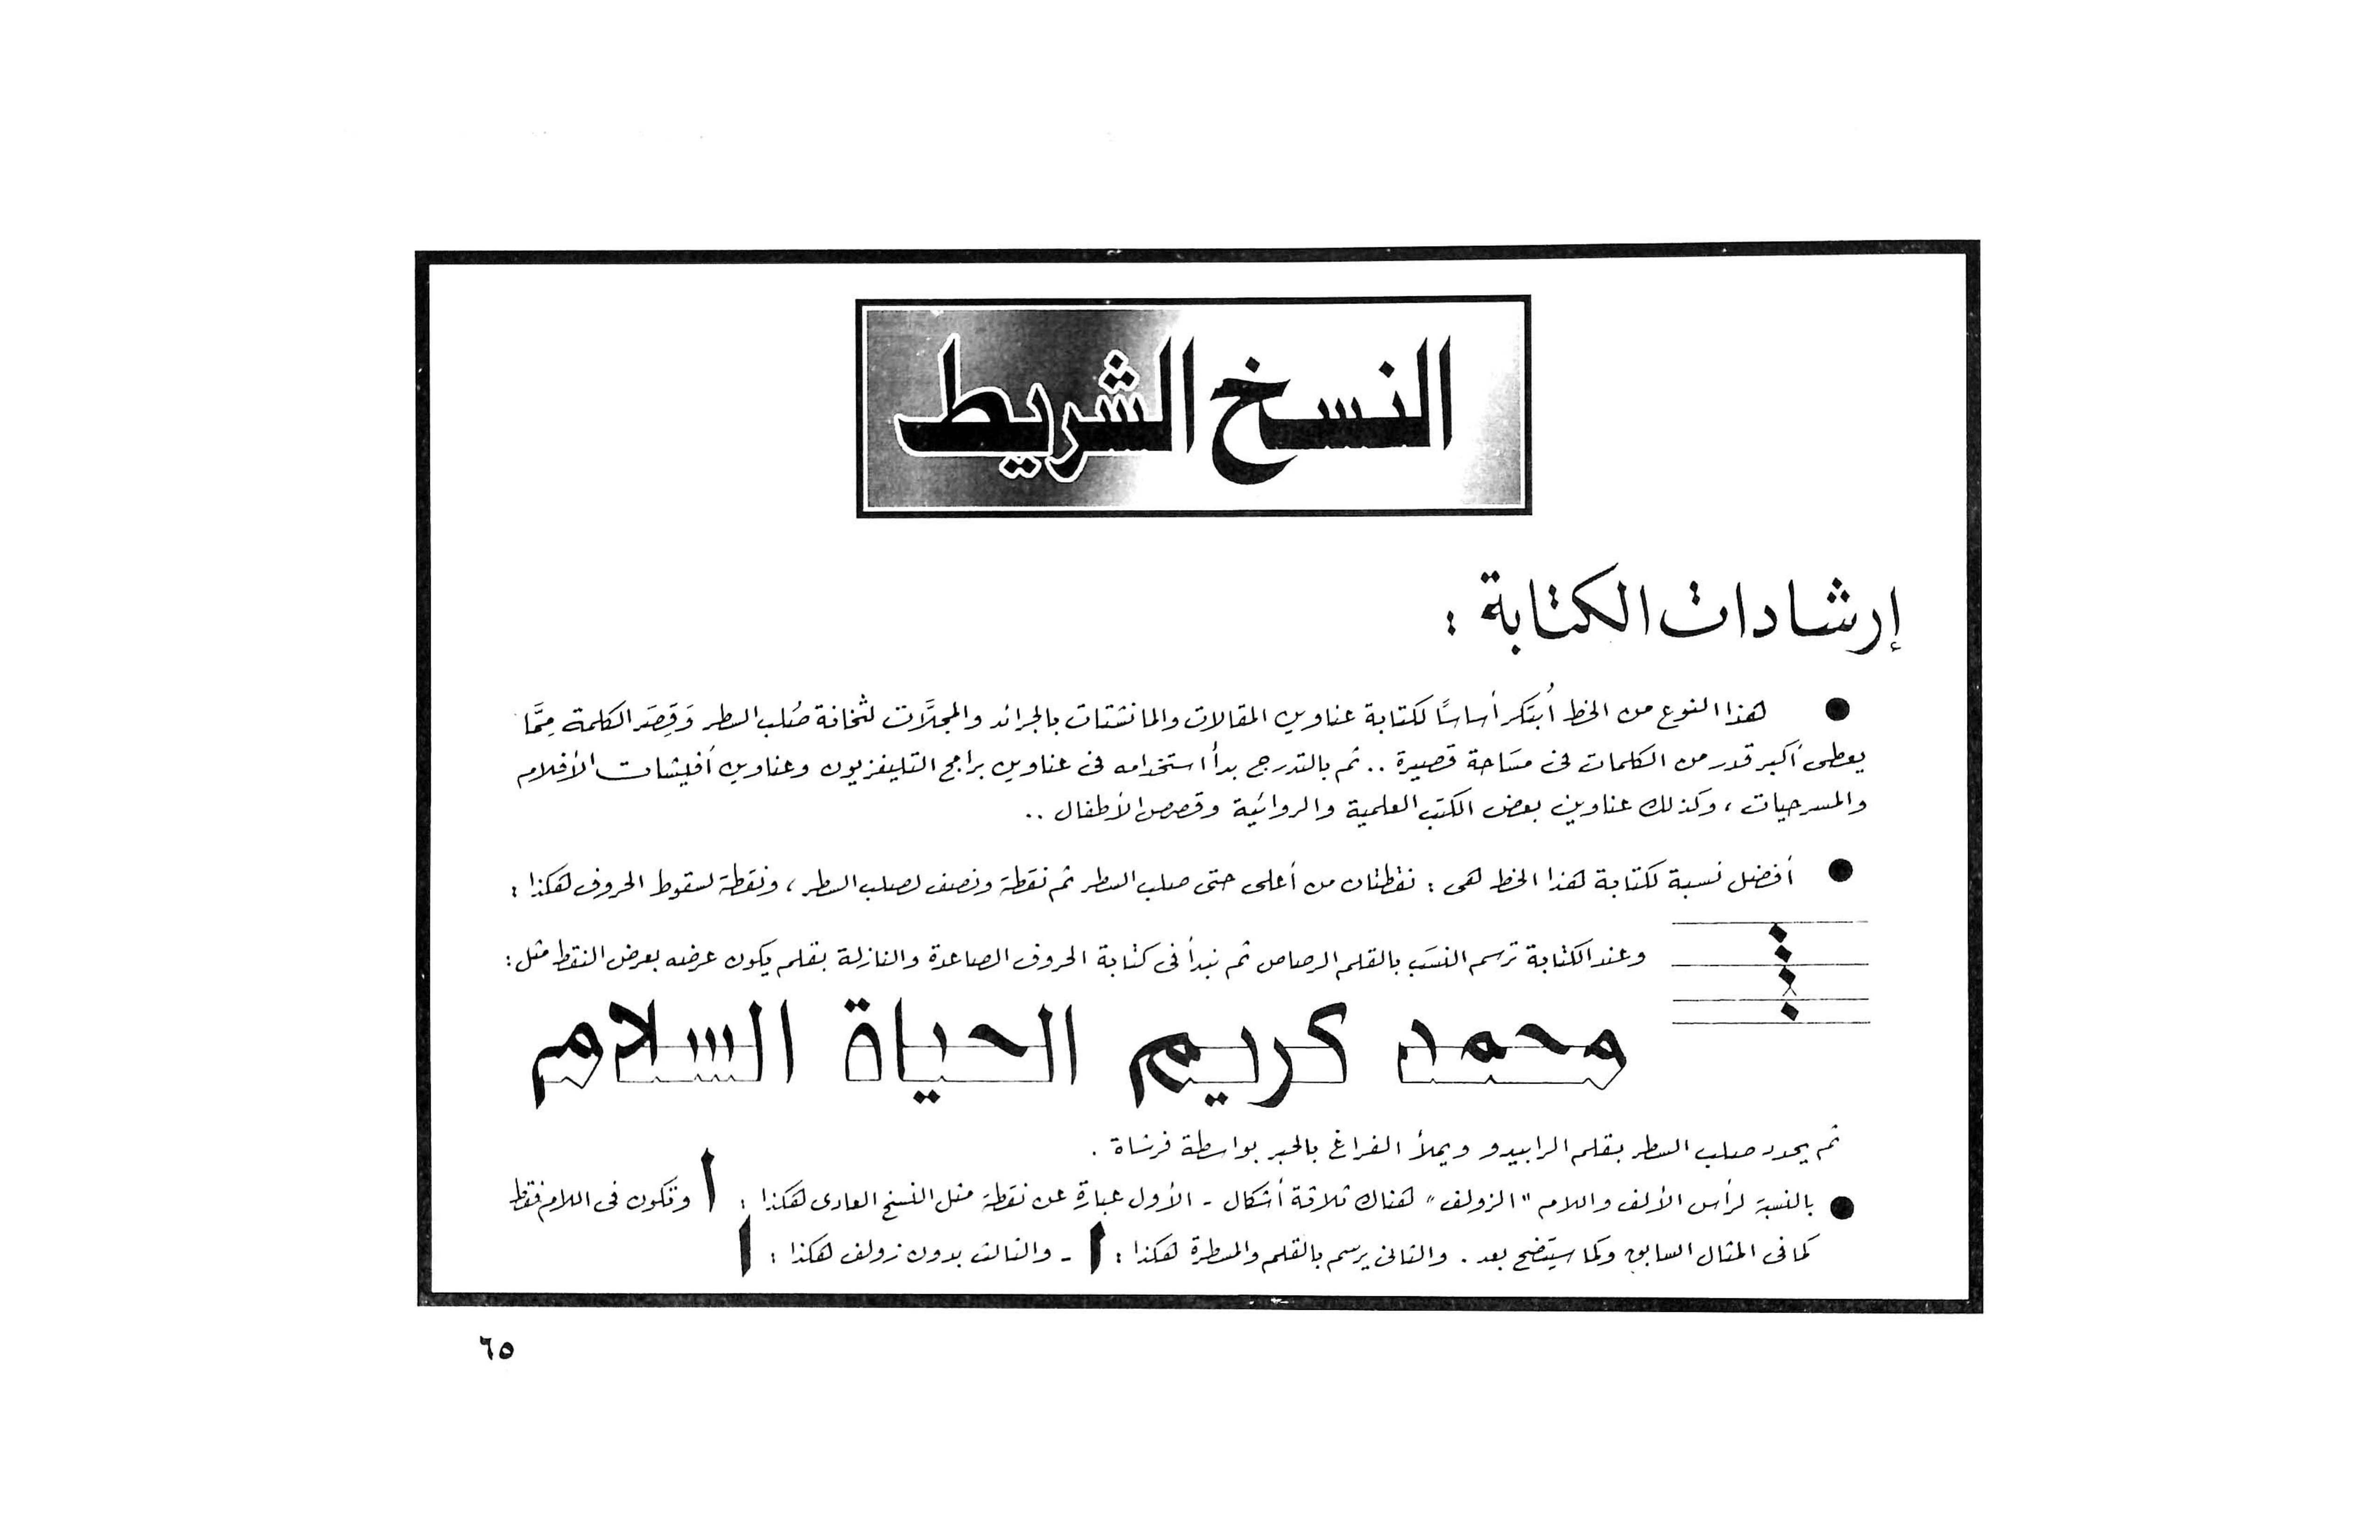 النسخ الشريط
إرشادات الكتابة :
● هذا النوع من الخط أُبتكر أساسًا لكتابة عناوين المقالات والمانشتات بالجرائد والمجلَّات لثخانة صُلب السطر وَقِصَر الكلمة مِمَّا
يعطى أكبر قدر من الكلمات فى مسَاحة قصيرة .. ثم بالتدرج بدأ استخدامه فى عناوين برامج التليفزيون وعناوين أفيشات الأفلام
والمسرحيات ، وكذلك عناوين بعض الكتب العلمية والروائية وقصص الأطفال ..
● أفضل نسبة لكتابة هذا الخط هى : نقطتان من أعلى حتى صلب السطر ثم نقطة ونصف لصلب السطر ، ونقطة لسقوط الحروف هكذا :
وعند الكتابة ترسم النسَب بالقلم الرصاص ثم نبدأ فى كتابة الحروف الصاعدة والنازلة بقلم يكون عرضه بعرض النقط مثل :
محمد كريم الحياة السلام
ثم يحدد صلب السطر بقلم الرابيدو ويملأ الفراغ بالحبر بواسطة فرشاة .
● بالنسبة لرأس الألف واللام "الزولف" هناك ثلاثة أشكال - الأول عبارة عن نقطة مثل النسخ العادى هكذا : ا وتكون فى اللام فقط
كما فى المثال السابق وكما سيتضح بعد . والثانى يرسم بالقلم والمسطرة هكذا : ا - والثالث بدون زولف هكذا : ا
٦٥